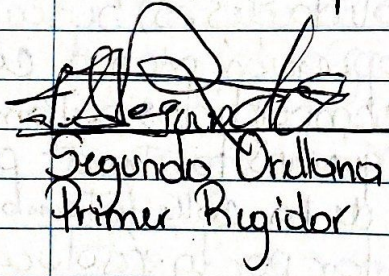 Segundo
Segundo Orellana
Primer Regidor